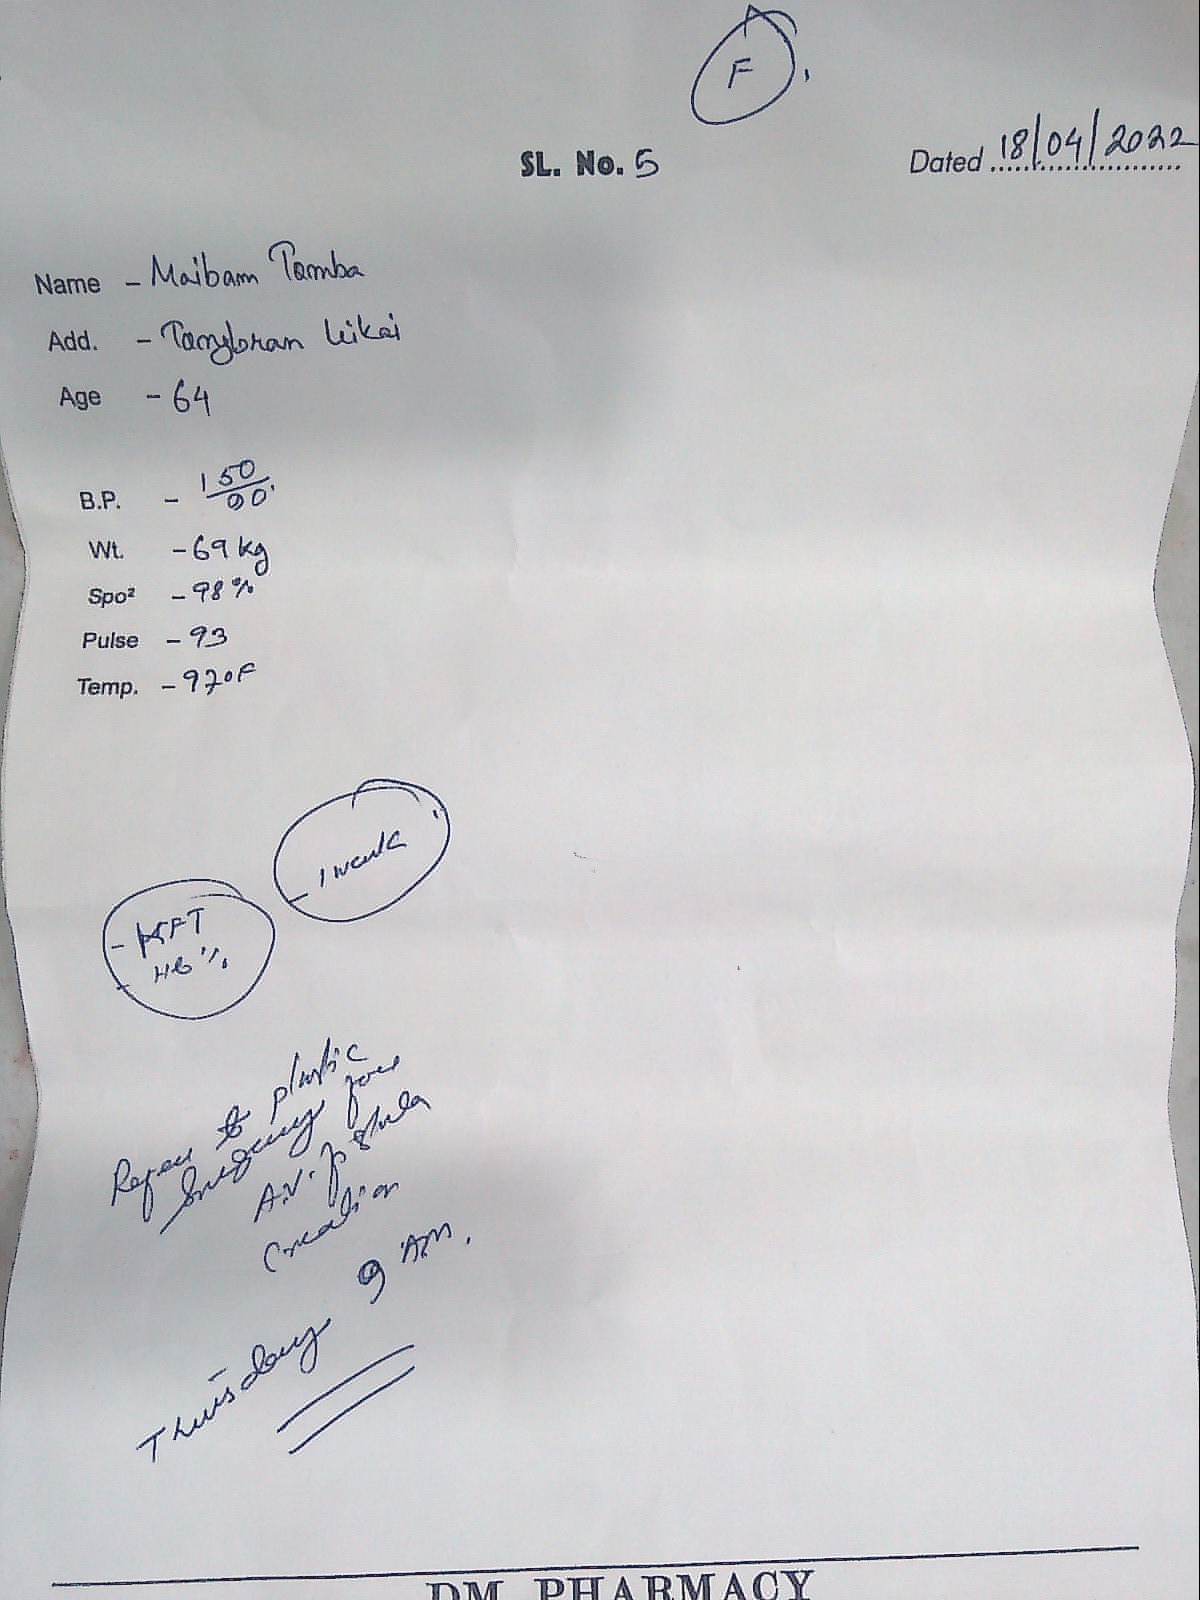 F
SL. No. 5
Dated 18/04/2022
Name - Maibam Tomba
Add. - Leikai
Age - 64
B.P. - 150/90
Wt. - 69 kg
Spo² - 98 %
Pulse - 93
Temp. - 97°F
- 1 week
- KFT
- HB %
Refer to plastic
Surgery for
A.V. fistula
Creation
Thursday 9 AM.
DM PHARMACY